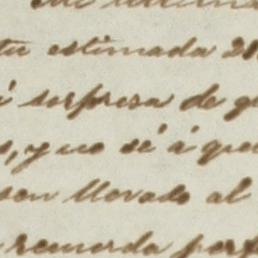 tu estimada 28
sorpresa de
y no sé á que
sen llevado al
recuerda perf